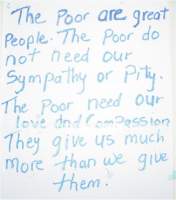 The Poor are great
People. The Poor do
not need our
Sympathy or Pity.
The Poor need our
love and Compassion
They give us much
more than we give
them.